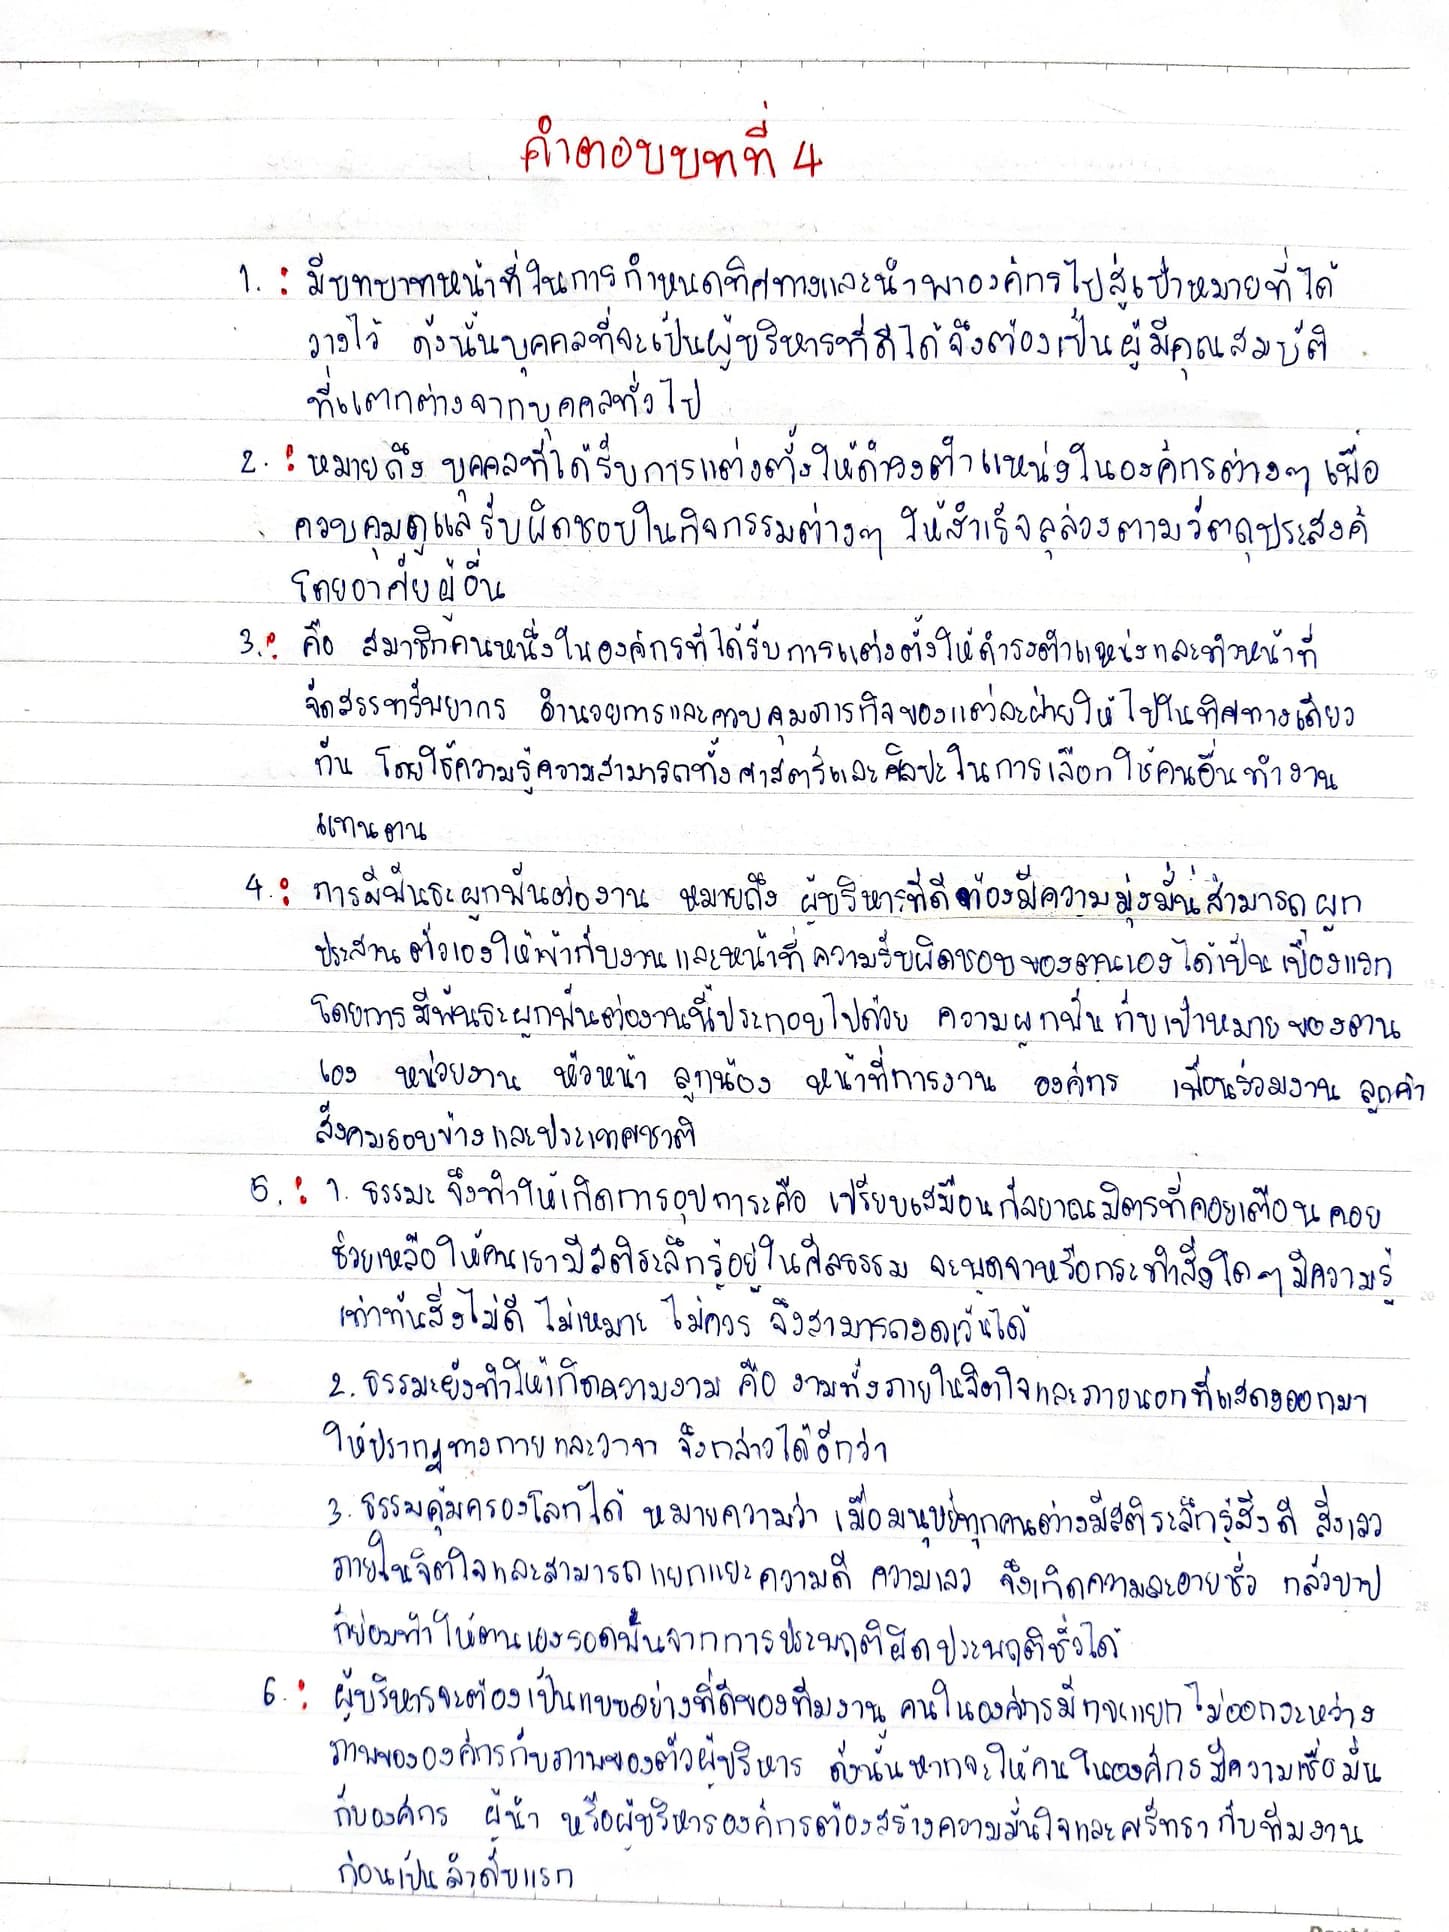 คำตอบบทที่ 4
1. : มีบทบาทหน้าที่ในการกำหนดทิศทางและนำพาองค์กรไปสู่เป้าหมายที่ได้
วางไว้ ดังนั้นบุคคลที่จะเป็นผู้บริหารที่ดีได้จึงต้องเป็นผู้มีคุณสมบัติ
ที่แตกต่างจากบุคคลทั่วไป
2. : หมายถึง บุคคลที่ได้รับการแต่งตั้งให้ดำรงตำแหน่งในองค์กรต่างๆ เพื่อ
ควบคุมดูแลรับผิดชอบในกิจกรรมต่างๆ ให้สำเร็จลุล่วงตามวัตถุประสงค์
โดยอาศัยผู้อื่น
3. : คือ สมาชิกคนหนึ่งในองค์กรที่ได้รับการแต่งตั้งให้ดำรงตำแหน่งและทำหน้าที่
จัดสรรทรัพยากร อำนวยการและควบคุมภารกิจของแต่ละฝ่ายให้ไปในทิศทางเดียว
กัน โดยใช้ความรู้ความสามารถทั้งศาสตร์และศิลปะในการเลือกใช้คนอื่นทำงาน
แทนตน
4. : การมีพันธะผูกพันต่องาน หมายถึง ผู้บริหารที่ดีต้องมีความมุ่งมั่นสามารถผูก
ประสานตัวเองให้เข้ากับงานและหน้าที่ความรับผิดชอบของตนเองได้เป็นเบื้องแรก
โดยการมีพันธะผูกพันต่องานนี้ประกอบไปด้วย ความผูกพันกับเป้าหมายของตน
เอง หน่วยงาน หัวหน้า ลูกน้อง หน้าที่การงาน องค์กร เพื่อนร่วมงาน ลูกค้า
สังคมรอบข้างและประเทศชาติ
5. : 1. ธรรมะ จึงทำให้เกิดการอุปการะคือ เปรียบเสมือนกัลยาณมิตรที่คอยเตือนคอย
ช่วยเหลือให้คนเรามีสติระลึกรู้อยู่ในศีลธรรม จะพูดจาหรือกระทำสิ่งใดๆ มีความรู้
เท่าทันสิ่งไม่ดี ไม่เหมาะ ไม่ควร จึงสามารถงดเว้นได้
2. ธรรมะยังทำให้เกิดความงาม คือ งามทั้งภายในจิตใจและภายนอกที่แสดงออกมา
ให้ปรากฏทางกายและวาจา จึงกล่าวได้อีกว่า
3. ธรรมคุ้มครองโลกได้ หมายความว่า เมื่อมนุษย์ทุกคนต่างมีสติระลึกรู้สิ่งดี สิ่งเลว
ภายในจิตใจและสามารถแยกแยะความดี ความเลว จึงเกิดความละอายชั่ว กลัวบาป
ก็ย่อมทำให้ตนเองรอดพ้นจากการประพฤติผิดประพฤติชั่วได้
6. : ผู้บริหารจะต้องเป็นแบบอย่างที่ดีของทีมงาน คนในองค์กรมักจะแยกไม่ออกระหว่าง
ภาพขององค์กรกับภาพของตัวผู้บริหาร ดังนั้นหากจะให้คนในองค์กรมีความเชื่อมั่น
กับองค์กร ผู้นำ หรือผู้บริหารองค์กรต้องสร้างความมั่นใจและศรัทธากับทีมงาน
ก่อนเป็นลำดับแรก